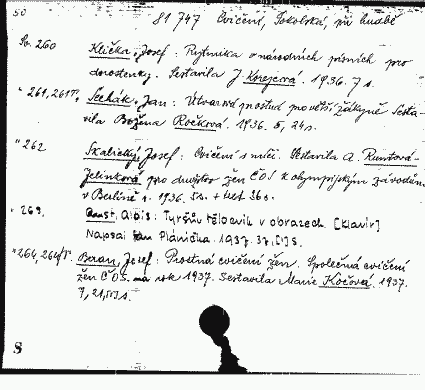 50
81 747 Cvičení, Sokolská, při hudbě
Sv. 260 Klička, Josef: Rytmika o národních písních pro
dorostenky. Sestavila J. Korejcová. 1936. 7 s.
" 261, 261 Sechák, Jan: Útvarová prostná pro větší žákyně. Sesta-
vila Božena Ročková. 1936. 5, 24 s.
" 262 Skalický, Josef: Cvičení s míči. Sestavila A. Runtová-
Jelínková pro družstvo žen ČOS k olympijským závodům
v Berlíně r. 1936. 5 s. + text 36 s.
" 263. Ernst, Alois: Tyršův tělocvik v obrazech. [Klavír]
Napsal Jan Plánička. 1937. 37, [1] s.
" 264, 264 Beran, Josef: Prostná cvičení žen. Společná cvičení
žen ČOS. na rok 1937. Sestavila Marie Kočová. 1937.
7, 21, [1] s.
S